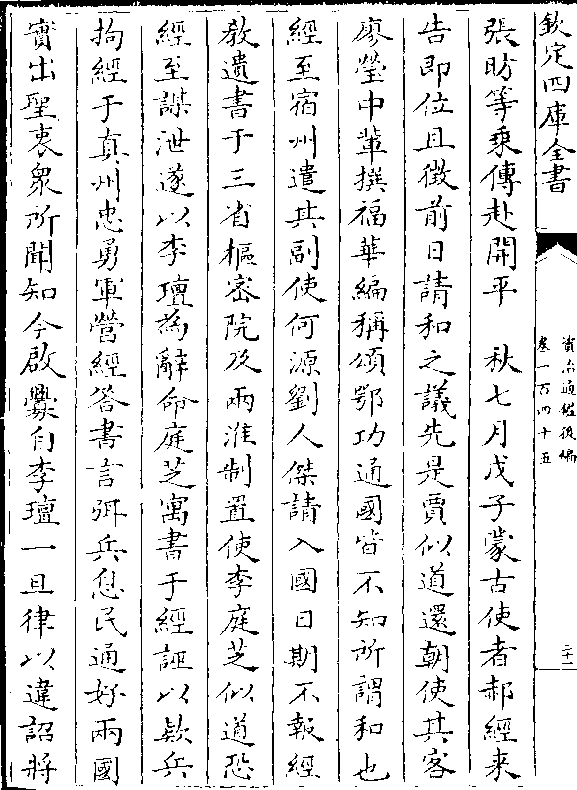 欽定四庫全書
資治通鑑後編
卷一百四十五
二十二
張昉等乘傳赴開平　秋七月戊子蒙古使者郝經來
告即位且徵前日請和之議先是賈似道還朝使其客
廖瑩中軰撰福華編稱頌鄂功通國皆不知所謂和也
經至宿州遣其副使何源劉人傑請入國日期不報經
數遺書于三省樞密院及兩淮制置使李庭芝似道恐
經至謀泄遂以李璮為辭命庭芝寓書于經誣以欵兵
拘經于真州忠勇軍營經答書言弭兵息民通好兩國
實出聖衷衆所聞知今啟釁自李璮一旦律以違詔將